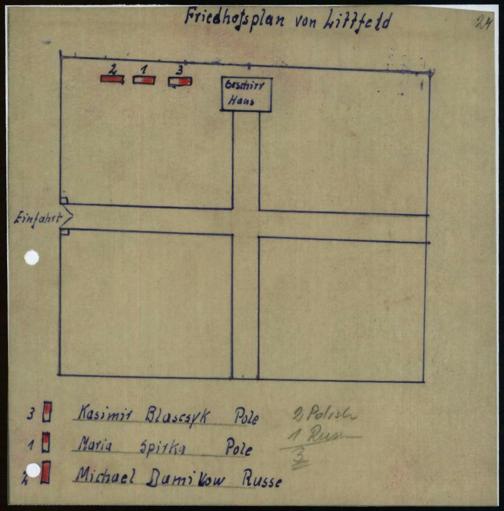 Friedhofsplan von Littfeld
24
2 1 3
Geschirr
Haus
Einfahrt
3 Kasimir Blascsyk Pole
2 Polish
1 Maria Spirka Pole
1 Russ
3
2 Michael Damikow Russe